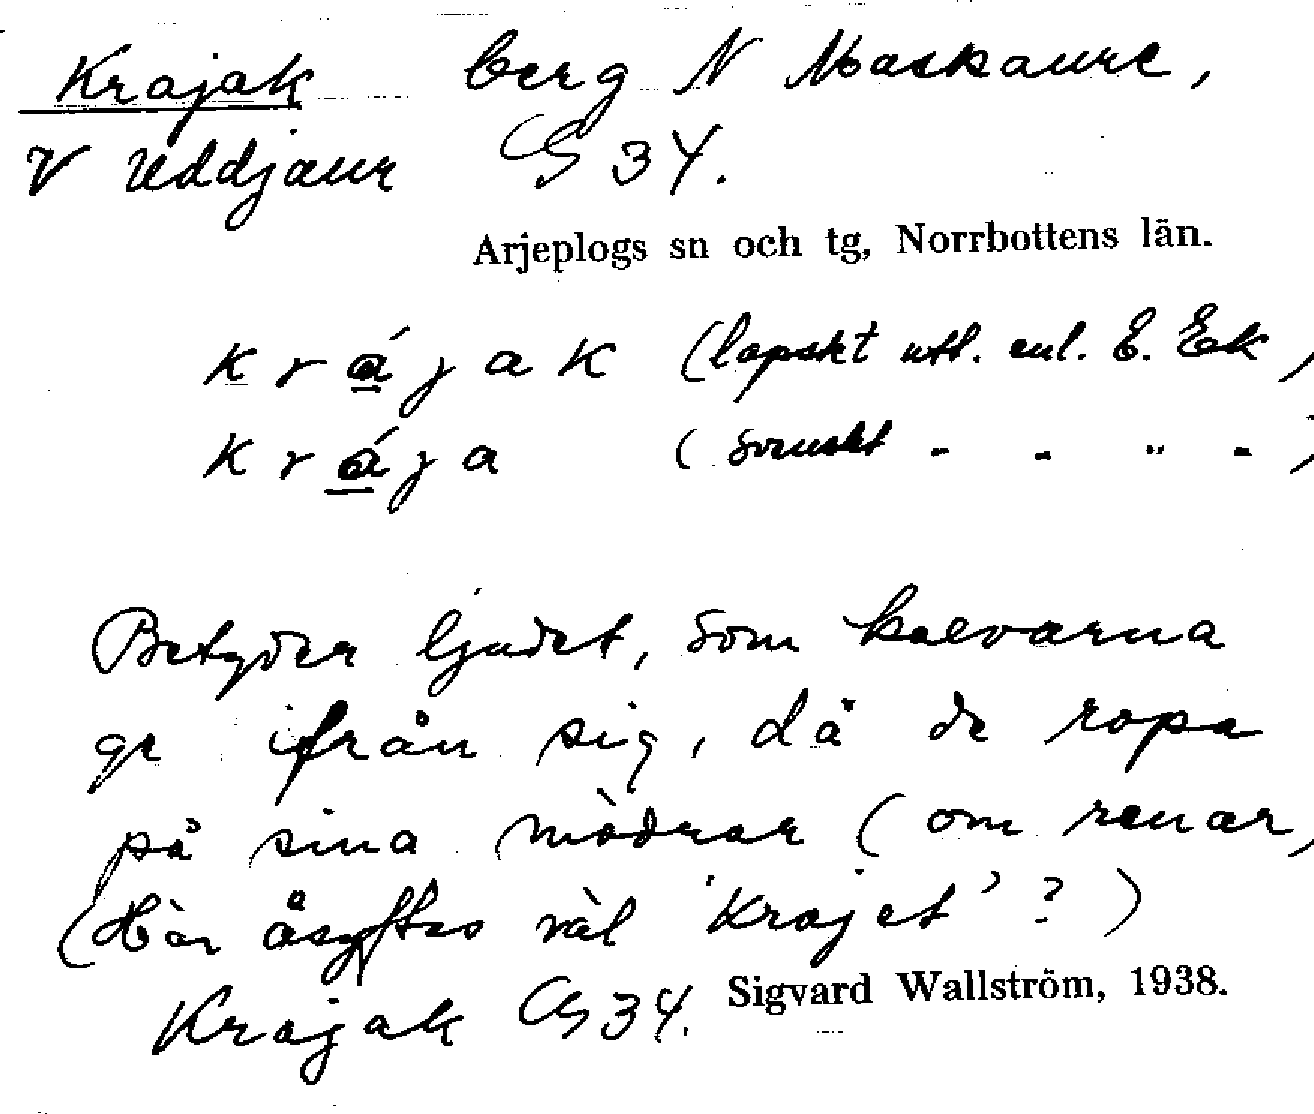 Krajak berg N Maskaure,
V Uddjaur GS 34.
Arjeplogs sn och tg, Norrbottens län.
krájak (lapskt utt. enl. E. Ek)
krája (svenskt - - " -)
Betyder ljudet, som kalvarna
ge ifrån sig, då de ropa
på sina mödrar (om renar)
(Här åsyftas väl 'krajet'?)
Krajak GS 34. Sigvard Wallström, 1938.